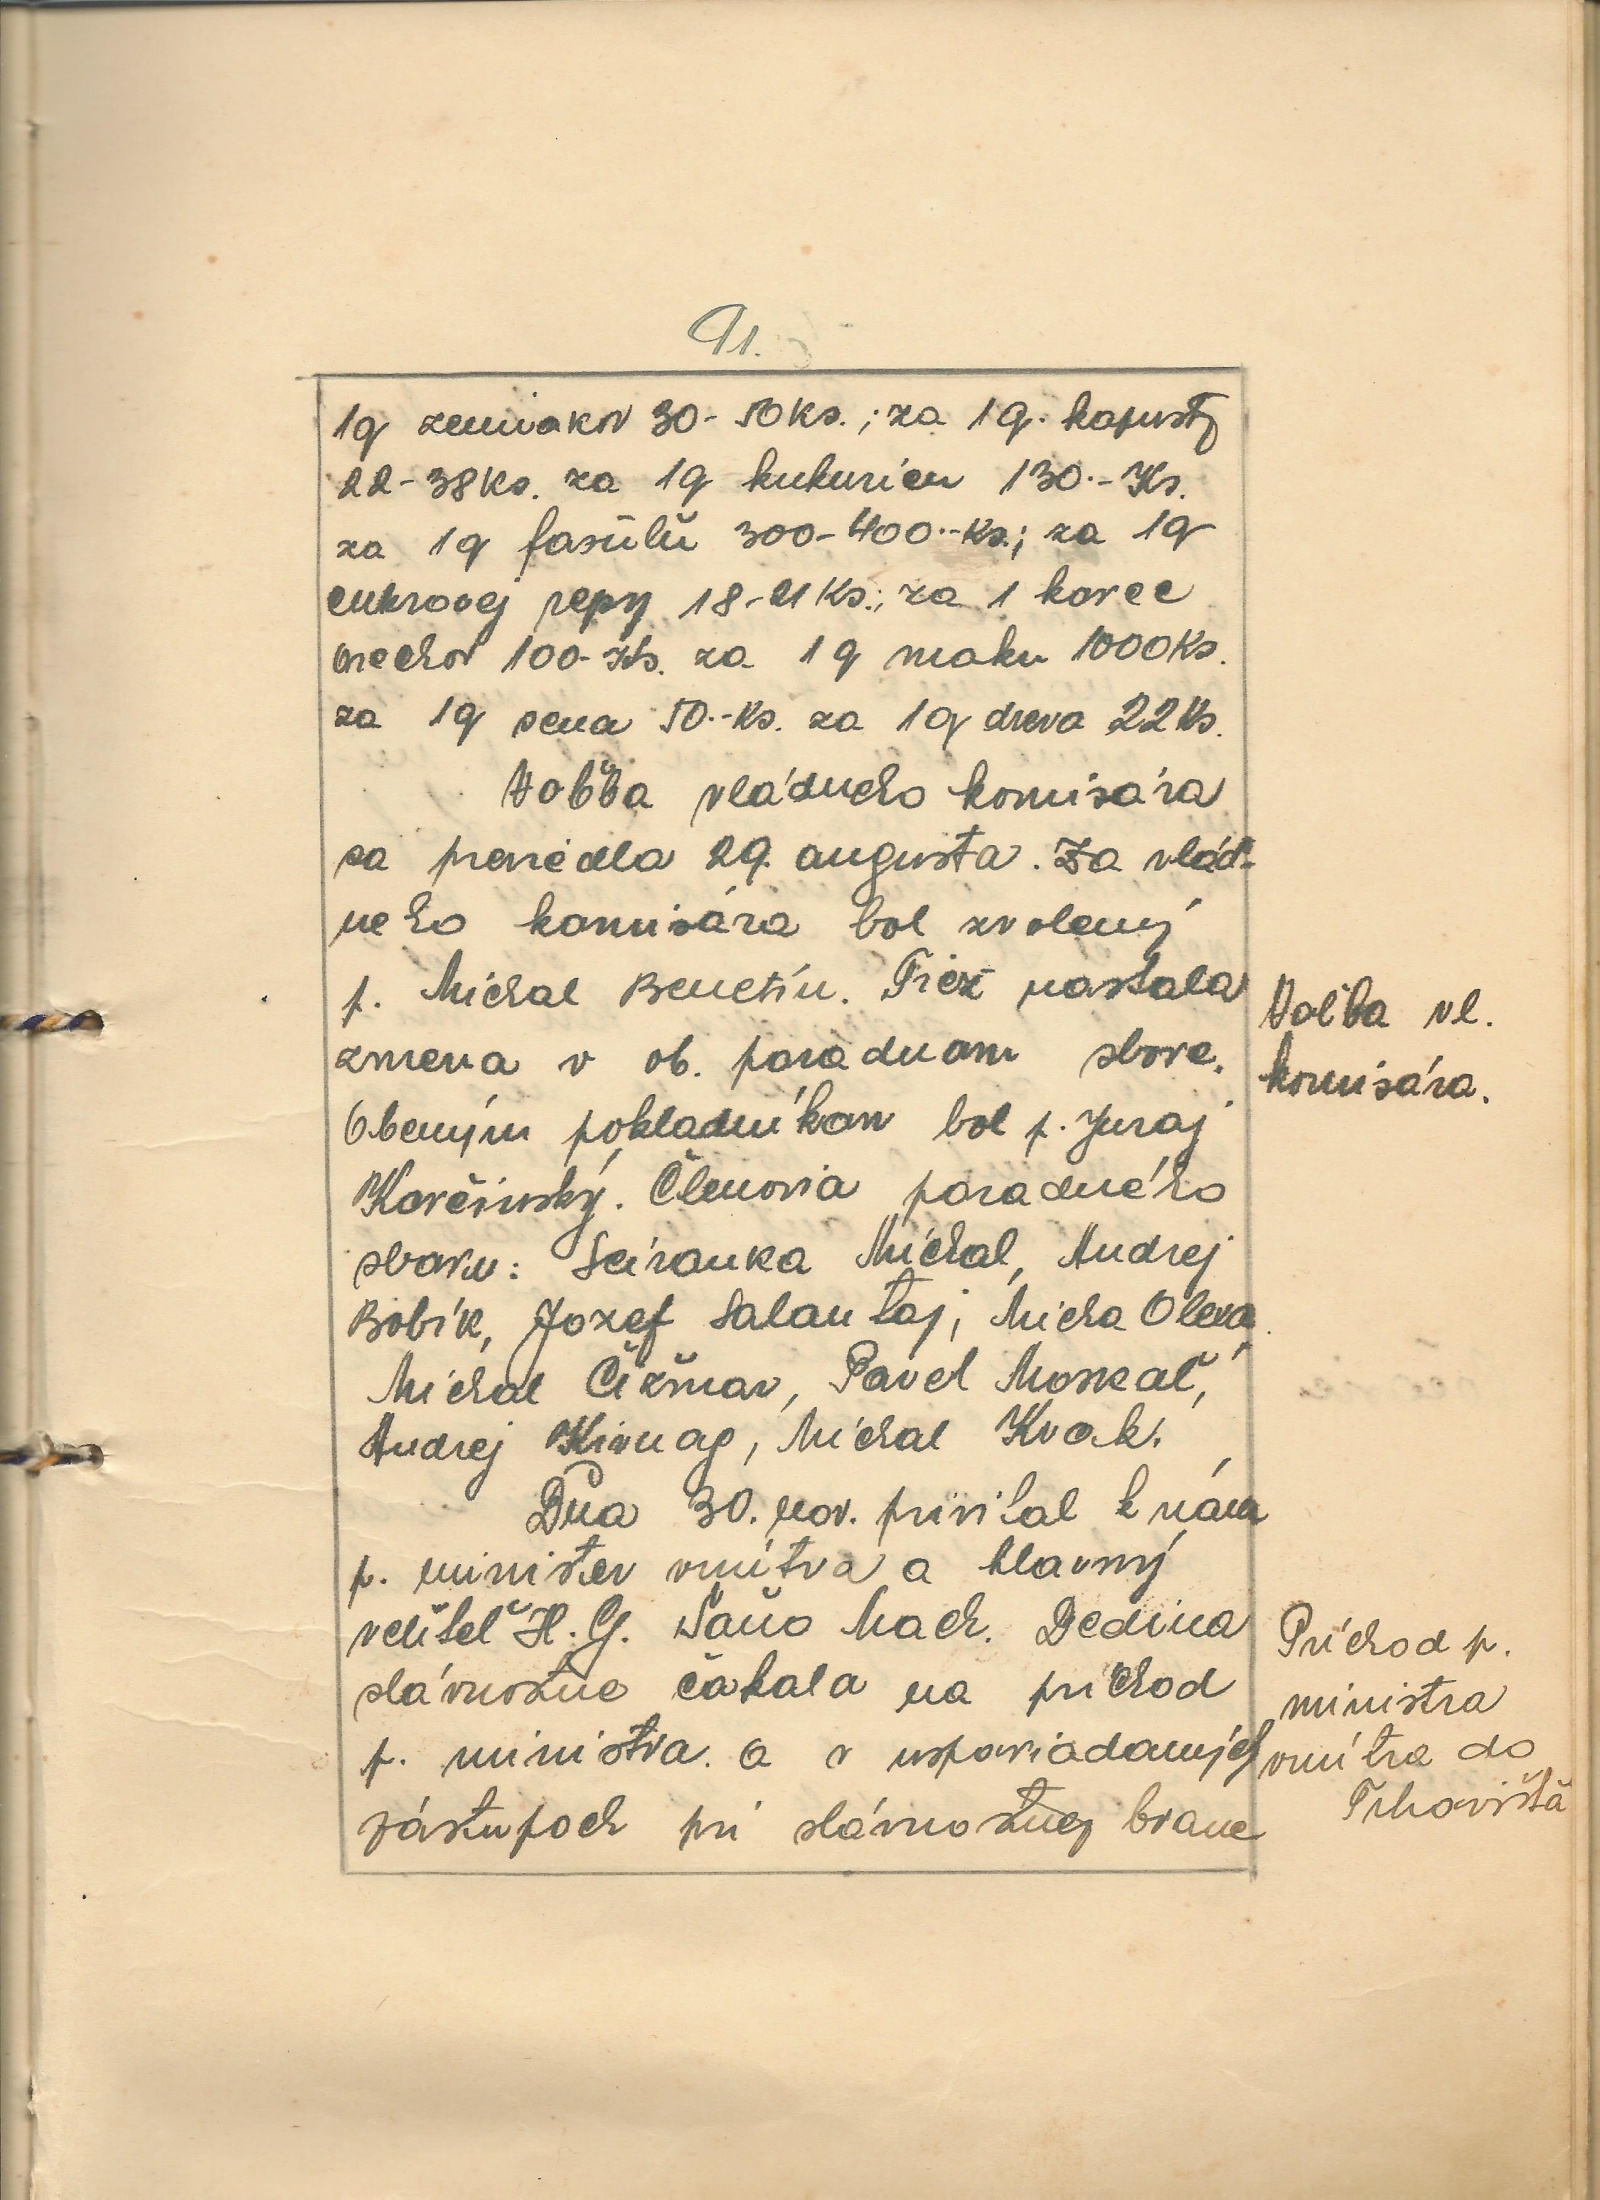 91.
1q zemiakov 30-50Ks.; za 1q. kapusty
22-38Ks. za 1q kukuricu 130.-Ks.
za 1q fasúlů 300-400.-Ks.; za 1q
cukrovej repy 18-21Ks.; za 1 korec
orechov 100-Ks. za 1q maku 1000Ks.
za 1q sena 50.-Ks. za 1q dreva 22Ks.
Voľba vládneho komisára
sa previedla 29. augusta. Za vlád-
neho komisára bol zvolený
p. Michal Benetín. Tiež nastala
zmena v ob. poradnom sbore.
Obecným pokladníkom bol p. Juraj
Korčinský. Členovia poradného
sboru: Sciranka Michal, Andrej
Bobík, Jozef Salantaj, Micha Olexa,
Michal Čižmar, Pavel Moskaľ,
Andrej Kivnag, Michal Kvak.
Dňa 30. nov. privítal k nám
p. minister vnútra a hlavný
veliteľ H. G. Šaňo Mach. Dedina
slávnostne čakala na príchod
p. ministra. a v usporiadaných
zástupoch pri slávnostnej brane
Voľba vl.
komisára.
Príchod p.
ministra
vnútra do
Trhovišťa